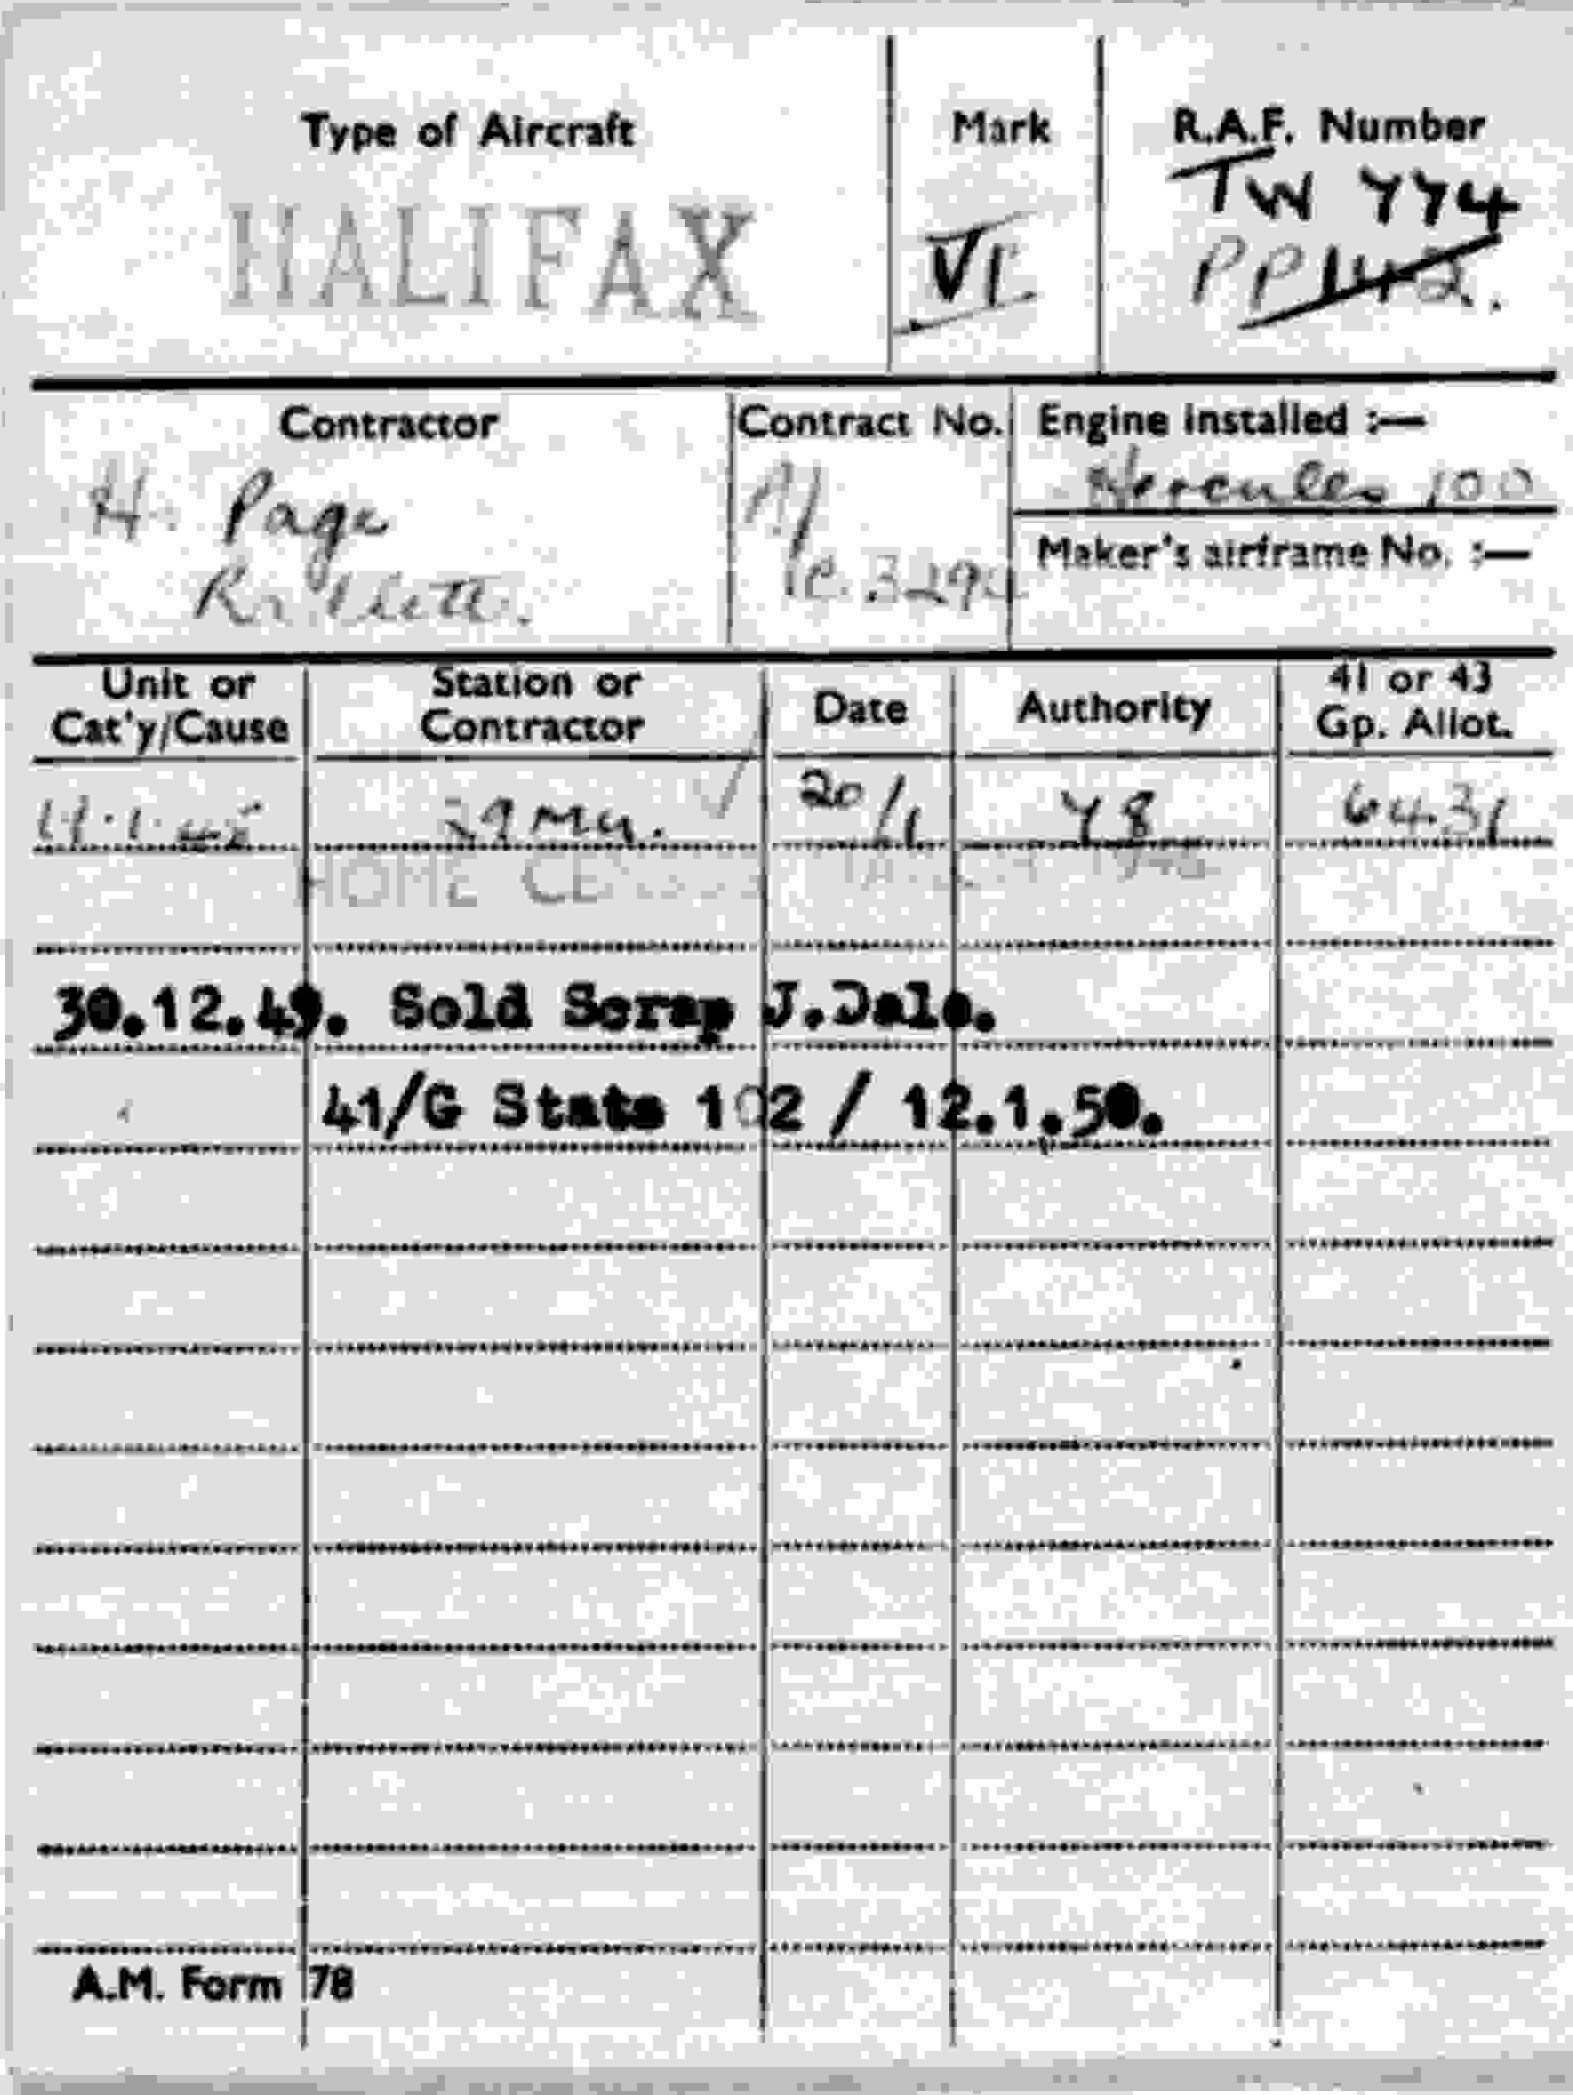 Type of Aircraft
HALIFAX
Mark
VI
R.A.F. Number
TW 774
PP142.
Contractor
H. Page
Contract No.
Engine installed :—
Hercules 100
Maker's airframe No. :—
Unit or Cat'y/Cause
Station or Contractor
Date
Authority
41 or 43 Gp. Allot.
29 Mu. 20/1 78 6431
HOME
30.12.49. Sold Scrap J.Dale.
41/G Stats 102 / 12.1.50.
A.M. Form 78